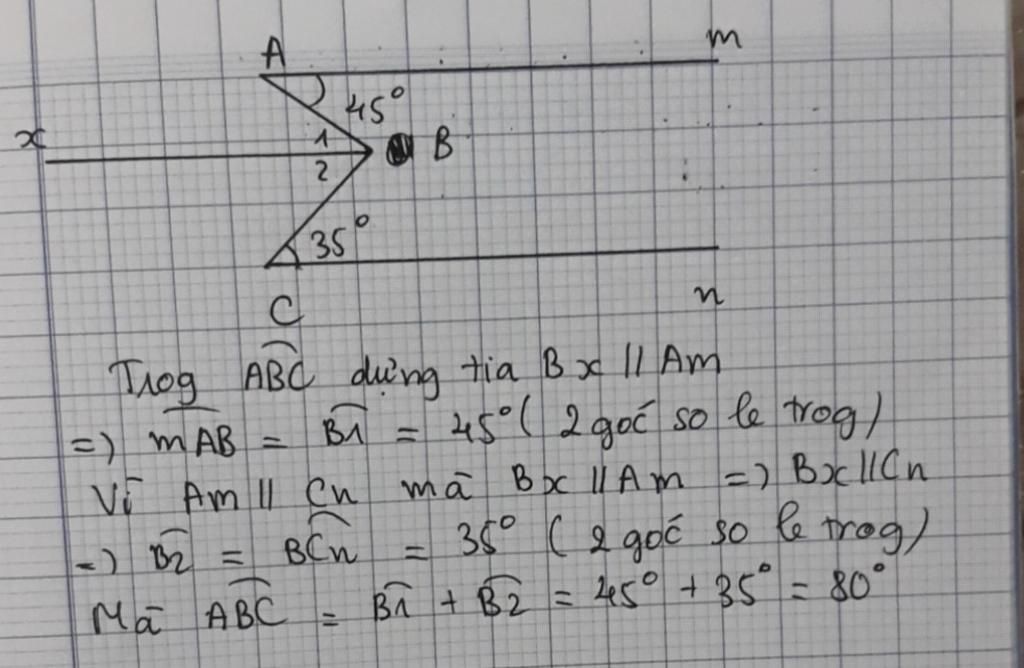 A m
45°
x 1 B
2
35°
C n
Trog ABC dựng tia Bx // Am
=) mAB = B1 = 45° ( 2 góc so le trog )
Vì Am // Cn mà Bx // Am =) Bx // Cn
=) B2 = BCn = 35° ( 2 góc so le trog )
Mà ABC = B1 + B2 = 45° + 35° = 80°